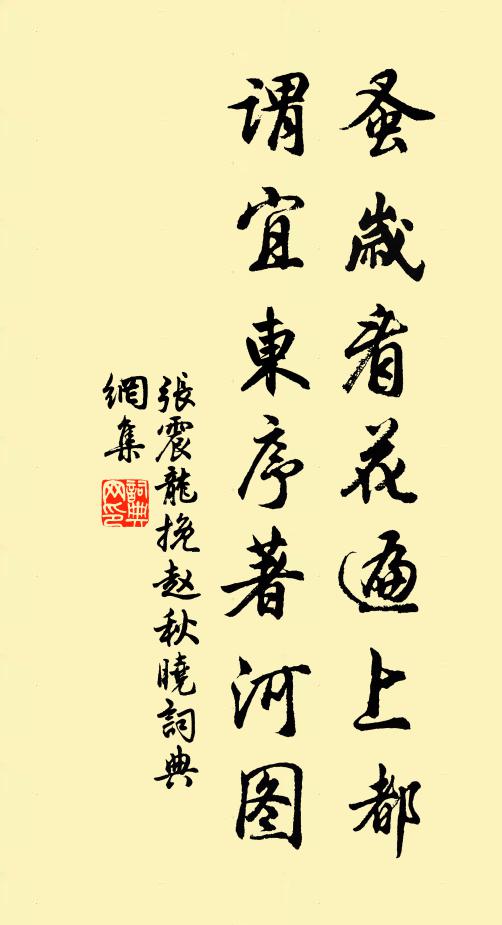 蚤歲看花遍上都
謂宜東序著河图
張震龍挽赵秋曉詞典
網集
詞典
网印